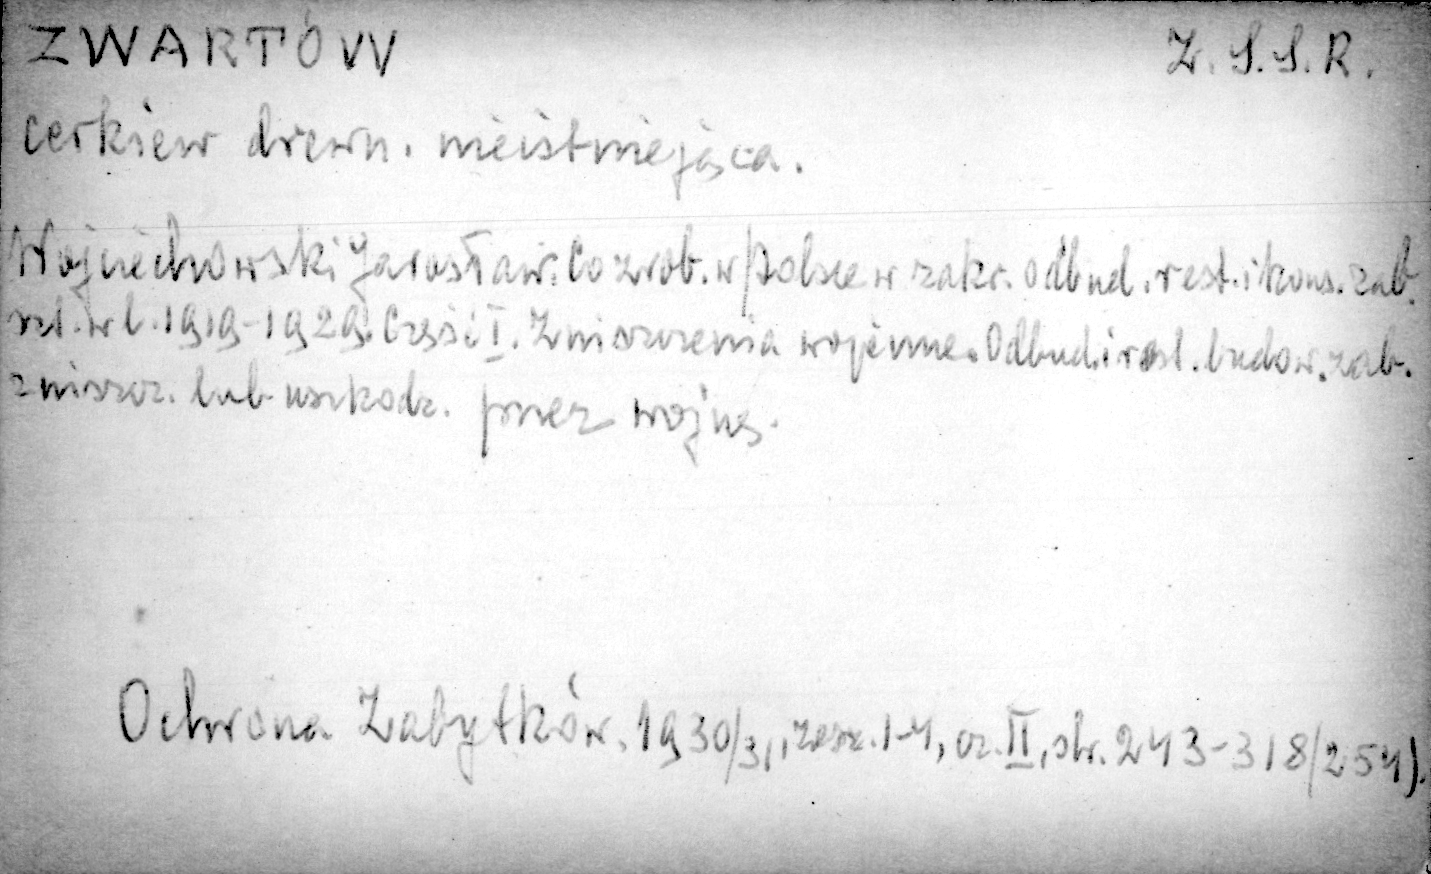 ZWARTÓW Z.S.S.R.
cerkiew drewn. nieistniejąca.
Wojciechowski Jarosław. Co zrob. w Polsce w zakr. odbud. rest. i kons. zab.
szt. w l. 1919-1929. Część I. Zniszczenia wojenne. Odbud. i rest. budow. zab.
zniszcz. lub uszkodz. przez wojnę.
Ochrona Zabytków. 1930/31, zesz. 1-4, cz. II, str. 243-318/254).